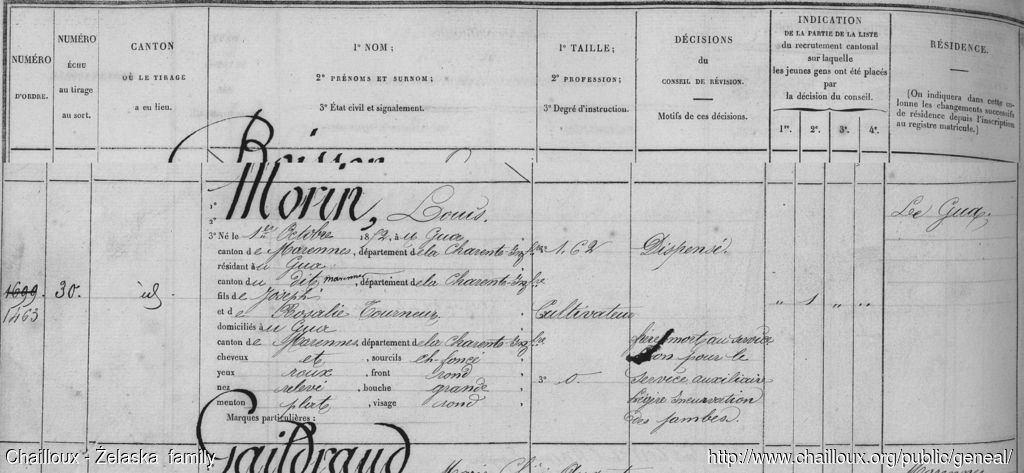 NUMÉRO
D'ORDRE.
NUMÉRO
ÉCHU
au tirage
au sort.
CANTON
OÙ LE TIRAGE
a eu lieu.
1° NOM;
2° PRÉNOMS ET SURNOM;
3° État civil et signalement.
1° TAILLE;
2° PROFESSION;
3° Degré d'instruction.
DÉCISIONS
du
CONSEIL DE RÉVISION.
Motifs de ces décisions.
INDICATION
DE LA PARTIE DE LA LISTE
du recrutement cantonal
sur laquelle
les jeunes gens ont été placés
par
la décision du conseil.
1re. 2e. 3e. 4e.
RÉSIDENCE.
[On indiquera dans cette co-
lonne les changements successifs
de résidence depuis l'inscription
au registre matricule.]
1° Morin,
2° Louis.
3° Né le 1er Octobre 1852, à u Gua
canton de Marennes, département de la Charente-Infre
résidant à u Gua
canton du dit marennes, département de la Charente-Infre
fils de Joseph
et de Rosalie Tourneur,
domiciliés à u Gua
canton de Marennes, département de la Charente-Infre
cheveux et, sourcils ch. foncé
yeux roux, front rond
nez relevé, bouche grande
menton plat, visage rond
Marques particulières :
1699.
1463
30.
id.
1.62
Cultivateur
3° 0.
Dispensé.
frère mort au service
Bon pour le
service auxiliaire
légère incurvation
des jambes.
" 1 " "
Le Gua.
Gaildraud
Chailloux - Żelaska family
http://www.chailloux.org/public/geneal/